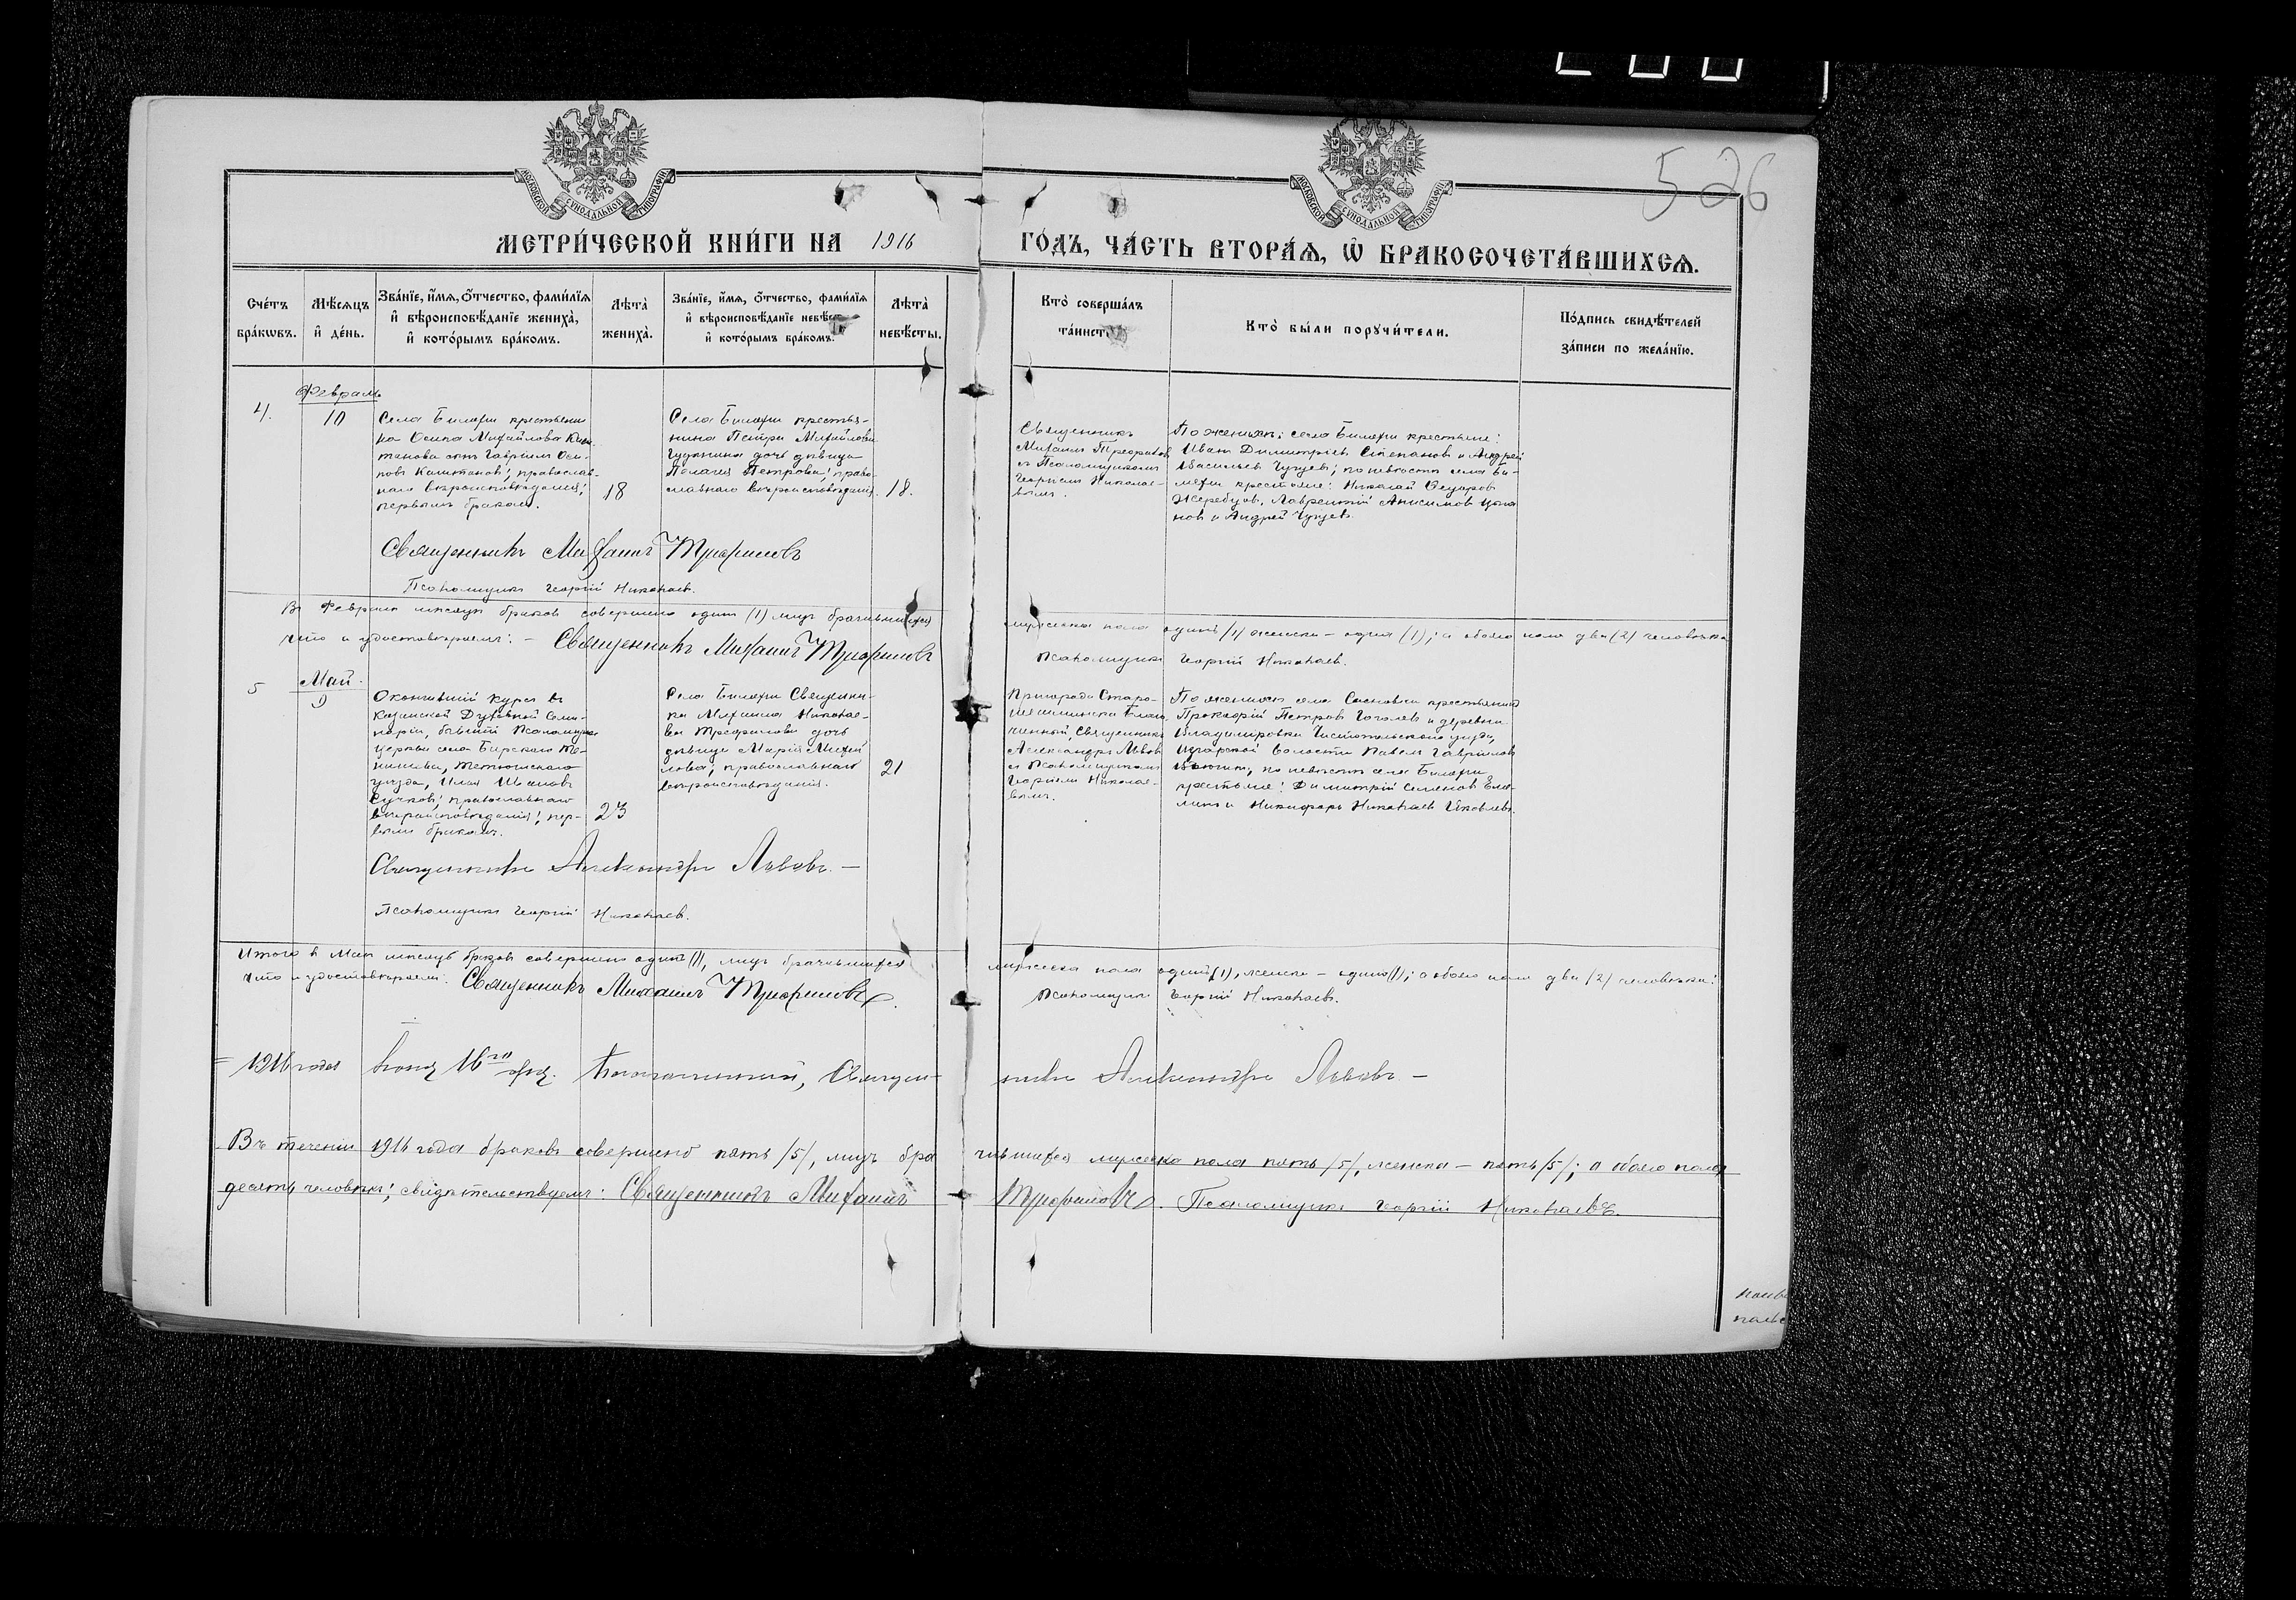 526
МОСКОВСКОЙ СѴНОДАЛЬНОЙ ТИПОГРАФІИ
МОСКОВСКОЙ СѴНОДАЛЬНОЙ ТИПОГРАФІИ
МЕТРИ́ЧЕСКОЙ КНИ́ГИ НА 1916 ГО́ДЪ, ЧА́СТЬ ВТОРА́Ѧ, Ѽ БРАКОСОЧЕТА́ВШИХСѦ.
Сче́тъ бра́кωвъ.
Мѣ́сѧцъ и҆ де́нь.
Зва́нїе, и҆́мѧ, ѻ҆́тчество, фами́лїѧ
и҆ вѣроисповѣ́данїе жениха̀,
и҆ кото́рымъ бра́комъ.
Лѣта̀ жениха̀.
Зва́нїе, и҆́мѧ, ѻ҆́тчество, фами́лїѧ
и҆ вѣроисповѣ́данїе невѣ́сты
и҆ кото́рымъ бра́комъ.
Лѣта̀ невѣ́сты.
Кто̀ соверша́лъ
та́инст
Кто̀ бы́ли порꙋчи́тели.
По́дпись свидѣ́телей
за́писи по жела́нїю.
Февраль
4.
10
Села Биляри крестьяни
на Осипа Михайлова
сынъ Гавріилъ Оси-
повъ Каштановъ, православ-
наго вѣроисповѣданія;
первымъ бракомъ.
18
Села Биляри крестья-
нина Петра Михайлова
дочь дѣвица
Пелагія Петрова, право-
славнаго вѣроисповѣданія.
18.
Священникъ
Михаилъ Трефиловъ
съ Псаломщикомъ
Георгіемъ Николае-
вымъ.
По женихѣ: села Биляри крестьяне:
Иванъ Димитріевъ Степановъ и Андрей
Васильевъ по невѣстѣ села Би-
ляри крестьяне: Николай
Жеребцовъ, Лаврентій Анисимовъ
новъ и Андрей
Священникъ Михаилъ Трефиловъ
Псаломщикъ Георгій Николаевъ.
Въ Февралѣ мѣсяцѣ браковъ совершено одинъ (1) лицъ брачившихся
мужеска пола одинъ (1) женска – одна (1); а обоего пола два (2) человѣка
что и удостовѣряемъ: – Священникъ Михаилъ Трефиловъ
Псаломщикъ Георгій Николаевъ.
Май.
5
9
Окончившій курсъ въ
Казанской Духовной Семи-
наріи, бывшій Псаломщикъ
церкви села
Тетюшскаго
уѣзда, Илья Ивановъ
Сучковъ; православнаго
вѣроисповѣданія; пер-
вымъ бракомъ.
23
Села Биляри Священни-
ка Михаила Николае-
ва Трефилова дочь
дѣвица Марія Михай-
лова; православнаго
вѣроисповѣданія.
21
Пригорода Старо-
шешминска Благо-
чинный, Священникъ
Александръ Львовъ
съ Псаломщикомъ
Георгіемъ Николае-
вымъ.
По женихѣ села Сосновки крестьянинъ
Прокофій Петровъ Гоголевъ и деревни
Владимировки Чистопольскаго уѣзда,
волости Павелъ Гавриловъ
по невѣстѣ села Биляри
крестьяне: Димитрій Семеновъ
и Никифоръ Николаевъ Яковлевъ.
Священникъ Александръ Львовъ. –
Псаломщикъ Георгій Николаевъ.
Итого въ Маѣ мѣсяцѣ браковъ совершено одинъ (1), лицъ брачившихся
мужеска пола одинъ (1), женска – одна (1); а обоего пола два (2) человѣка:
что и удостовѣряемъ: Священникъ Михаилъ Трефиловъ.
Псаломщикъ Георгій Николаевъ.
1916 года 16го дня. Благочинный, Священ-
никъ Александръ Львовъ. –
Въ теченіи 1916 года браковъ совершено пять /5/, лицъ бра
чившихся мужеска пола пять /5/, женска – пять /5/; а обоего пола
десять человѣкъ; свидѣтельствуемъ: Священникъ Михаилъ
Трефиловъ. Псаломщикъ Георгій Николаевъ.